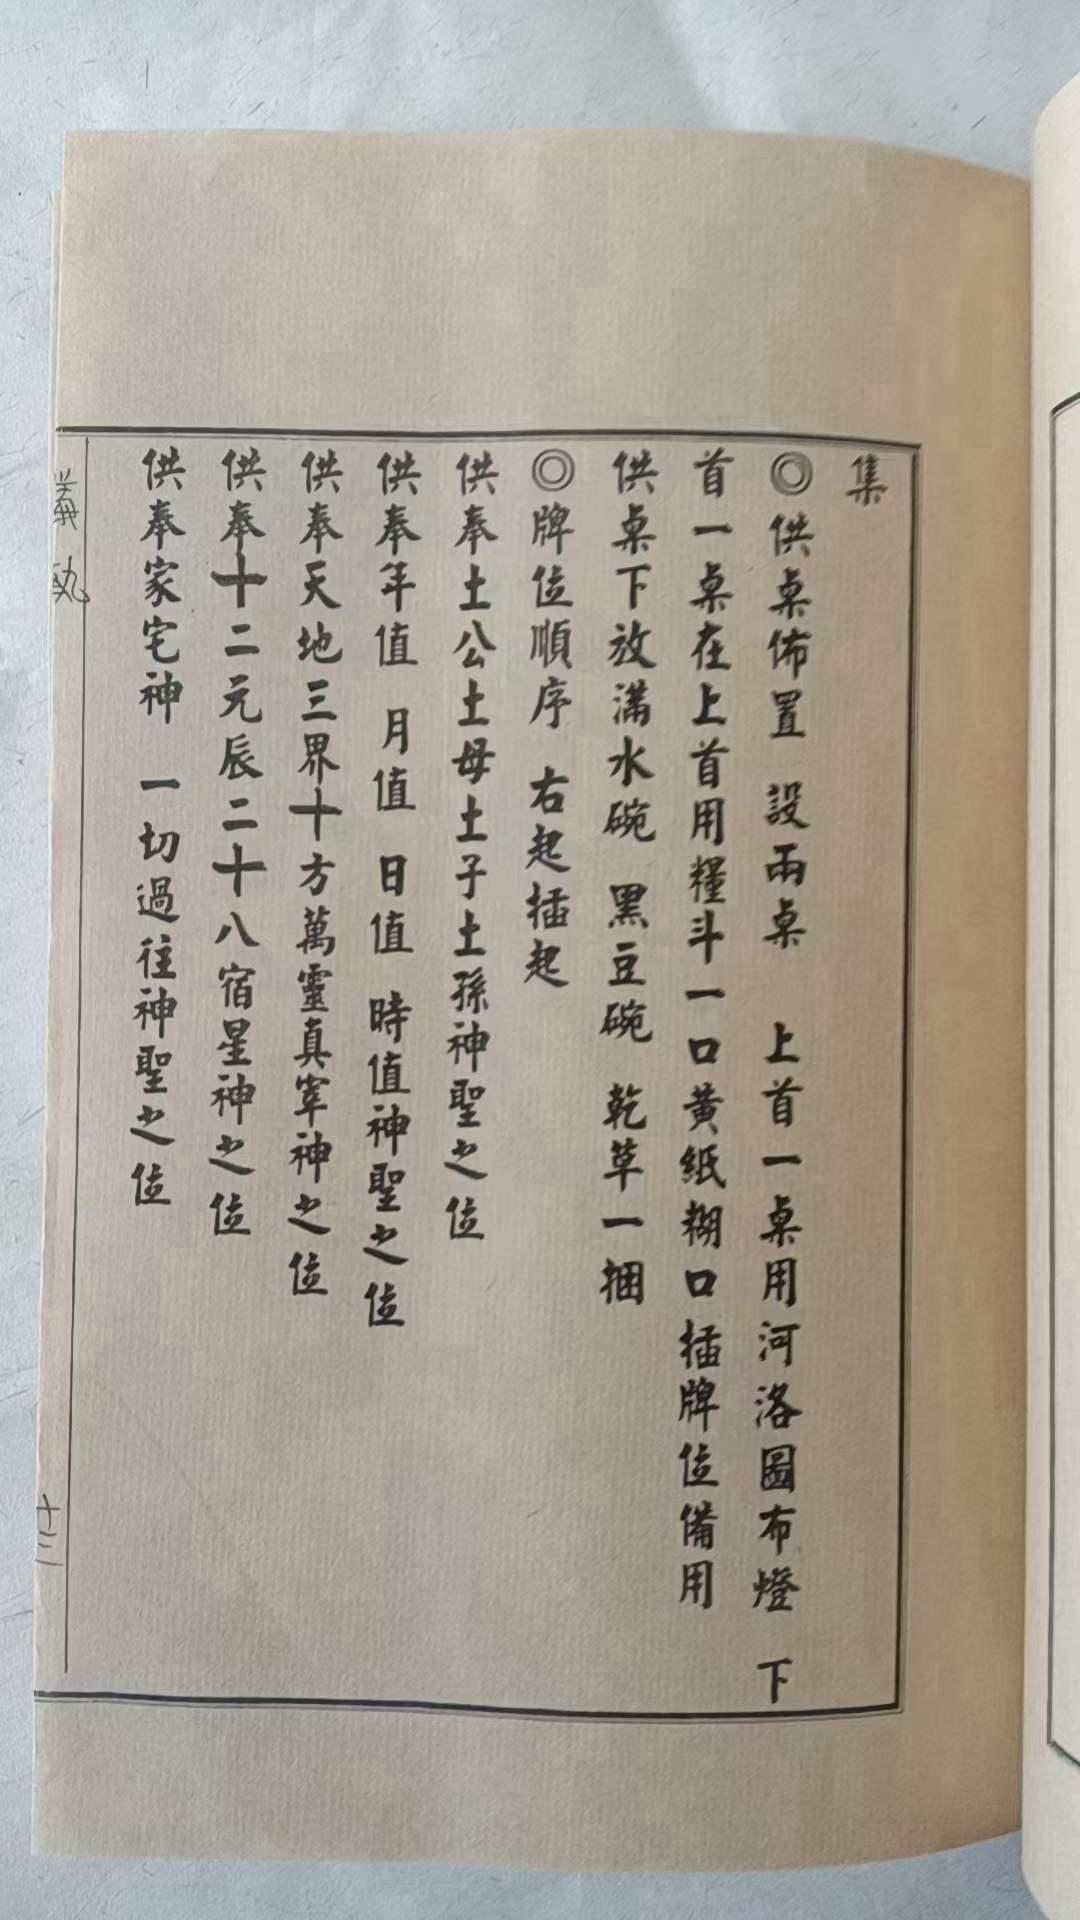 集
◎供桌佈置 設兩桌 上首一桌用河洛圖布燈 下
首一桌在上首用糧斗一口黃紙糊口插牌位備用
供桌下放滿水碗 黑豆碗 乾草一捆
◎牌位順序 右起插起
供奉土公土母土子土孫神聖之位
供奉年值 月值 日值 時值神聖之位
供奉天地三界十方萬靈真宰神之位
供奉十二元辰二十八宿星神之位
供奉家宅神 一切過往神聖之位
十三